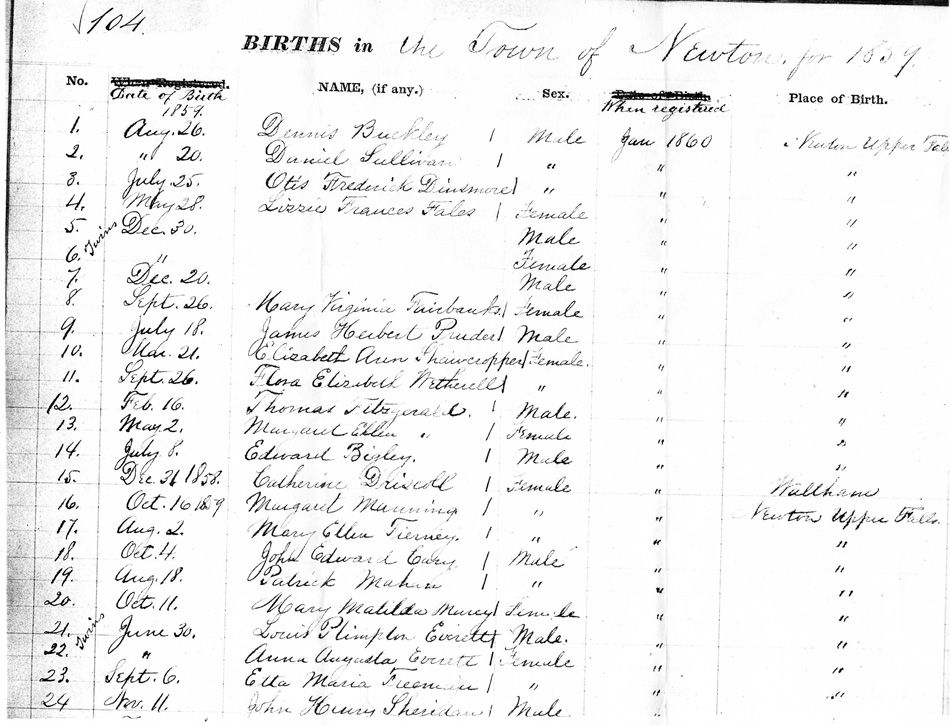 104.
BIRTHS in the Town of Newton. for 1859.
No. When Registered. NAME, (if any.) Sex. Date of Birth Place of Birth.
Date of Birth When registered
1859.
1. Aug. 26. Dennis Buckley | Male Jan 1860 Newton Upper Fal
2. " 20. Daniel Sullivan | " " "
3. July 25. Otis Frederick Dinsmore | " " "
4. May 28. Lizzie Frances Fales | Female " "
5. Twins Dec. 30. Male " "
6. " Female " "
7. Dec. 20. Male " "
8. Sept. 26. Mary Virginia Fairbanks. | Female " "
9. July 18. James Herbert Pruden | Male " "
10. Mar. 21. Elizabeth Ann Shawcropper | Female. " "
11. Sept. 26. Flora Elizabeth Wetherell | " " "
12. Feb. 16. Thomas Fitzgerald. | Male. " "
13. May 2. Margaret Ellen " | Female " "
14. July 8. Edward Bigley. | Male " "
15. Dec. 31 1858. Catherine Driscoll | Female " Waltham
16. Oct. 16 1859 Margaret Manning | " " Newton Upper Falls.
17. Aug. 2. Mary Ellen Tierney. | " " "
18. Oct. 4. John Edward Cary. | Male " "
19. Aug. 18. Patrick | " " "
20. Oct. 11. Mary Matilda | Female " "
21. Twins June 30. Louis Plimpton Everett | Male. " "
22. " Anna Augusta Everett | Female " "
23. Sept. 6. Etta Maria Freeman | " " "
24 Nov. 11. John Henry Sheridan | Male " "